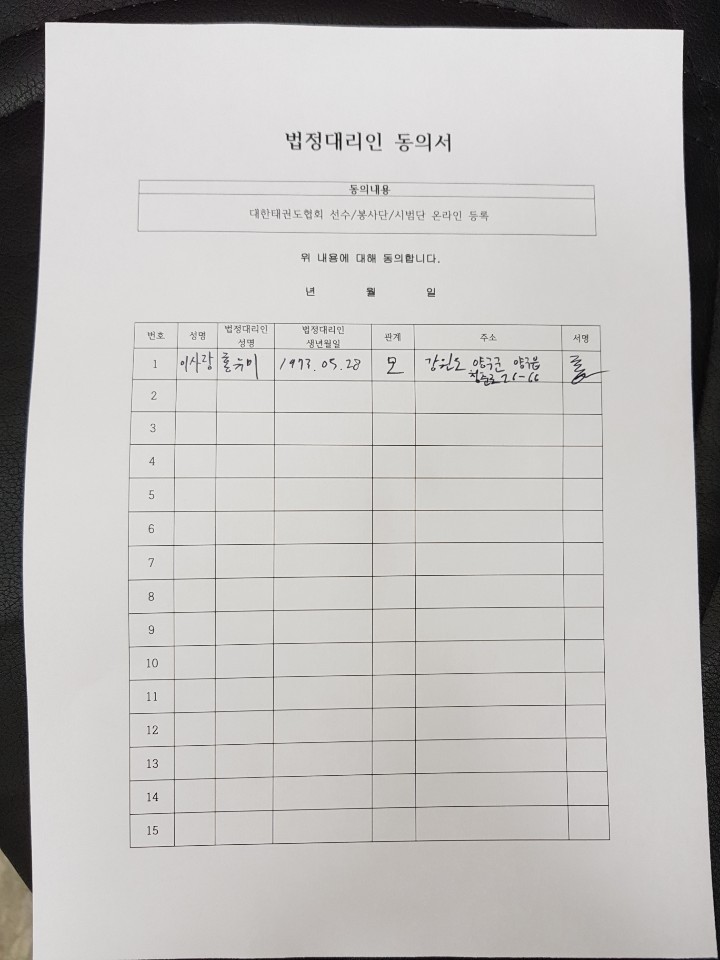 법정대리인 동의서
동의내용
대한태권도협회 선수/봉사단/시범단 온라인 등록
위 내용에 대해 동의합니다.
년 월 일
번호 성명 법정대리인 성명 법정대리인 생년월일 관계 주소 서명
1 이사랑 1973.05.28 모 강원도 양구군 양구읍
26-66
2
3
4
5
6
7
8
9
10
11
12
13
14
15